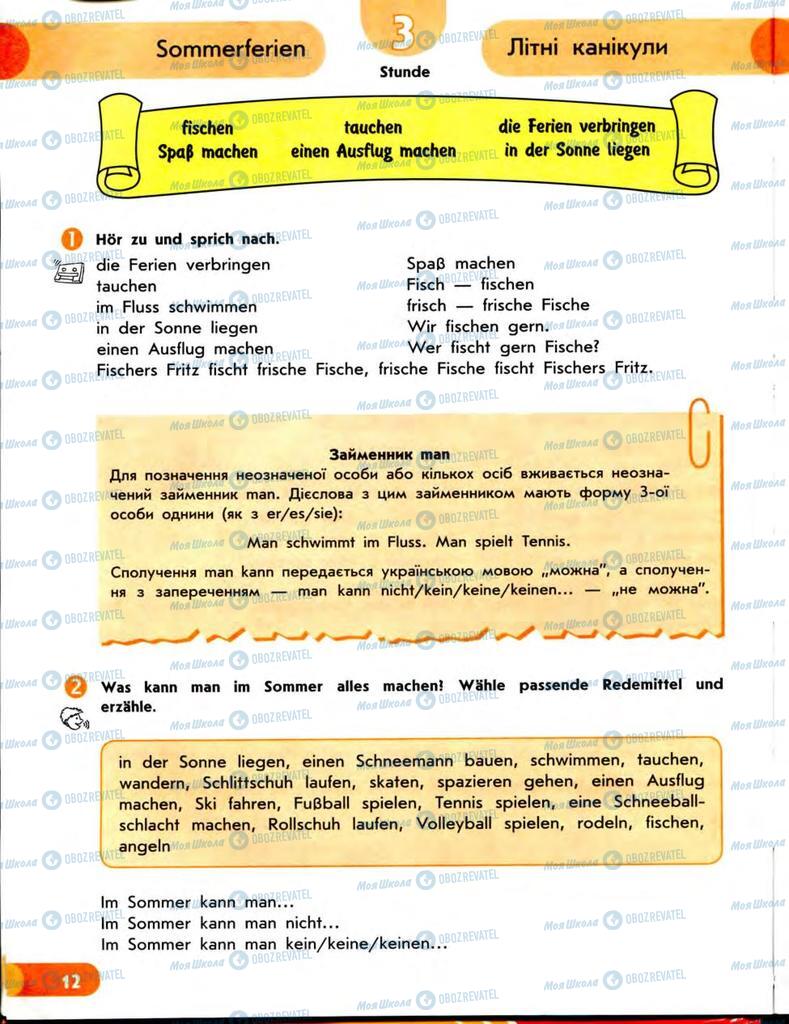 3
Sommerferien
Літні канікули
Stunde
fischen tauchen die Ferien verbringen
Spaß machen einen Ausflug machen in der Sonne liegen
1 Hör zu und sprich nach.
die Ferien verbringen
tauchen
im Fluss schwimmen
in der Sonne liegen
einen Ausflug machen
Spaß machen
Fisch — fischen
frisch — frische Fische
Wir fischen gern.
Wer fischt gern Fische?
Fischers Fritz fischt frische Fische, frische Fische fischt Fischers Fritz.
Займенник man
Для позначення неозначеної особи або кількох осіб вживається неозна-
чений займенник man. Дієслова з цим займенником мають форму 3-ої
особи однини (як з er/es/sie):
Man schwimmt im Fluss. Man spielt Tennis.
Сполучення man kann передається українською мовою „можна", а сполучен-
ня з запереченням — man kann nicht/kein/keine/keinen... — „не можна".
2 Was kann man im Sommer alles machen? Wähle passende Redemittel und
erzähle.
in der Sonne liegen, einen Schneemann bauen, schwimmen, tauchen,
wandern, Schlittschuh laufen, skaten, spazieren gehen, einen Ausflug
machen, Ski fahren, Fußball spielen, Tennis spielen, eine Schneeball-
schlacht machen, Rollschuh laufen, Volleyball spielen, rodeln, fischen,
angeln
Im Sommer kann man...
Im Sommer kann man nicht...
Im Sommer kann man kein/keine/keinen...
12